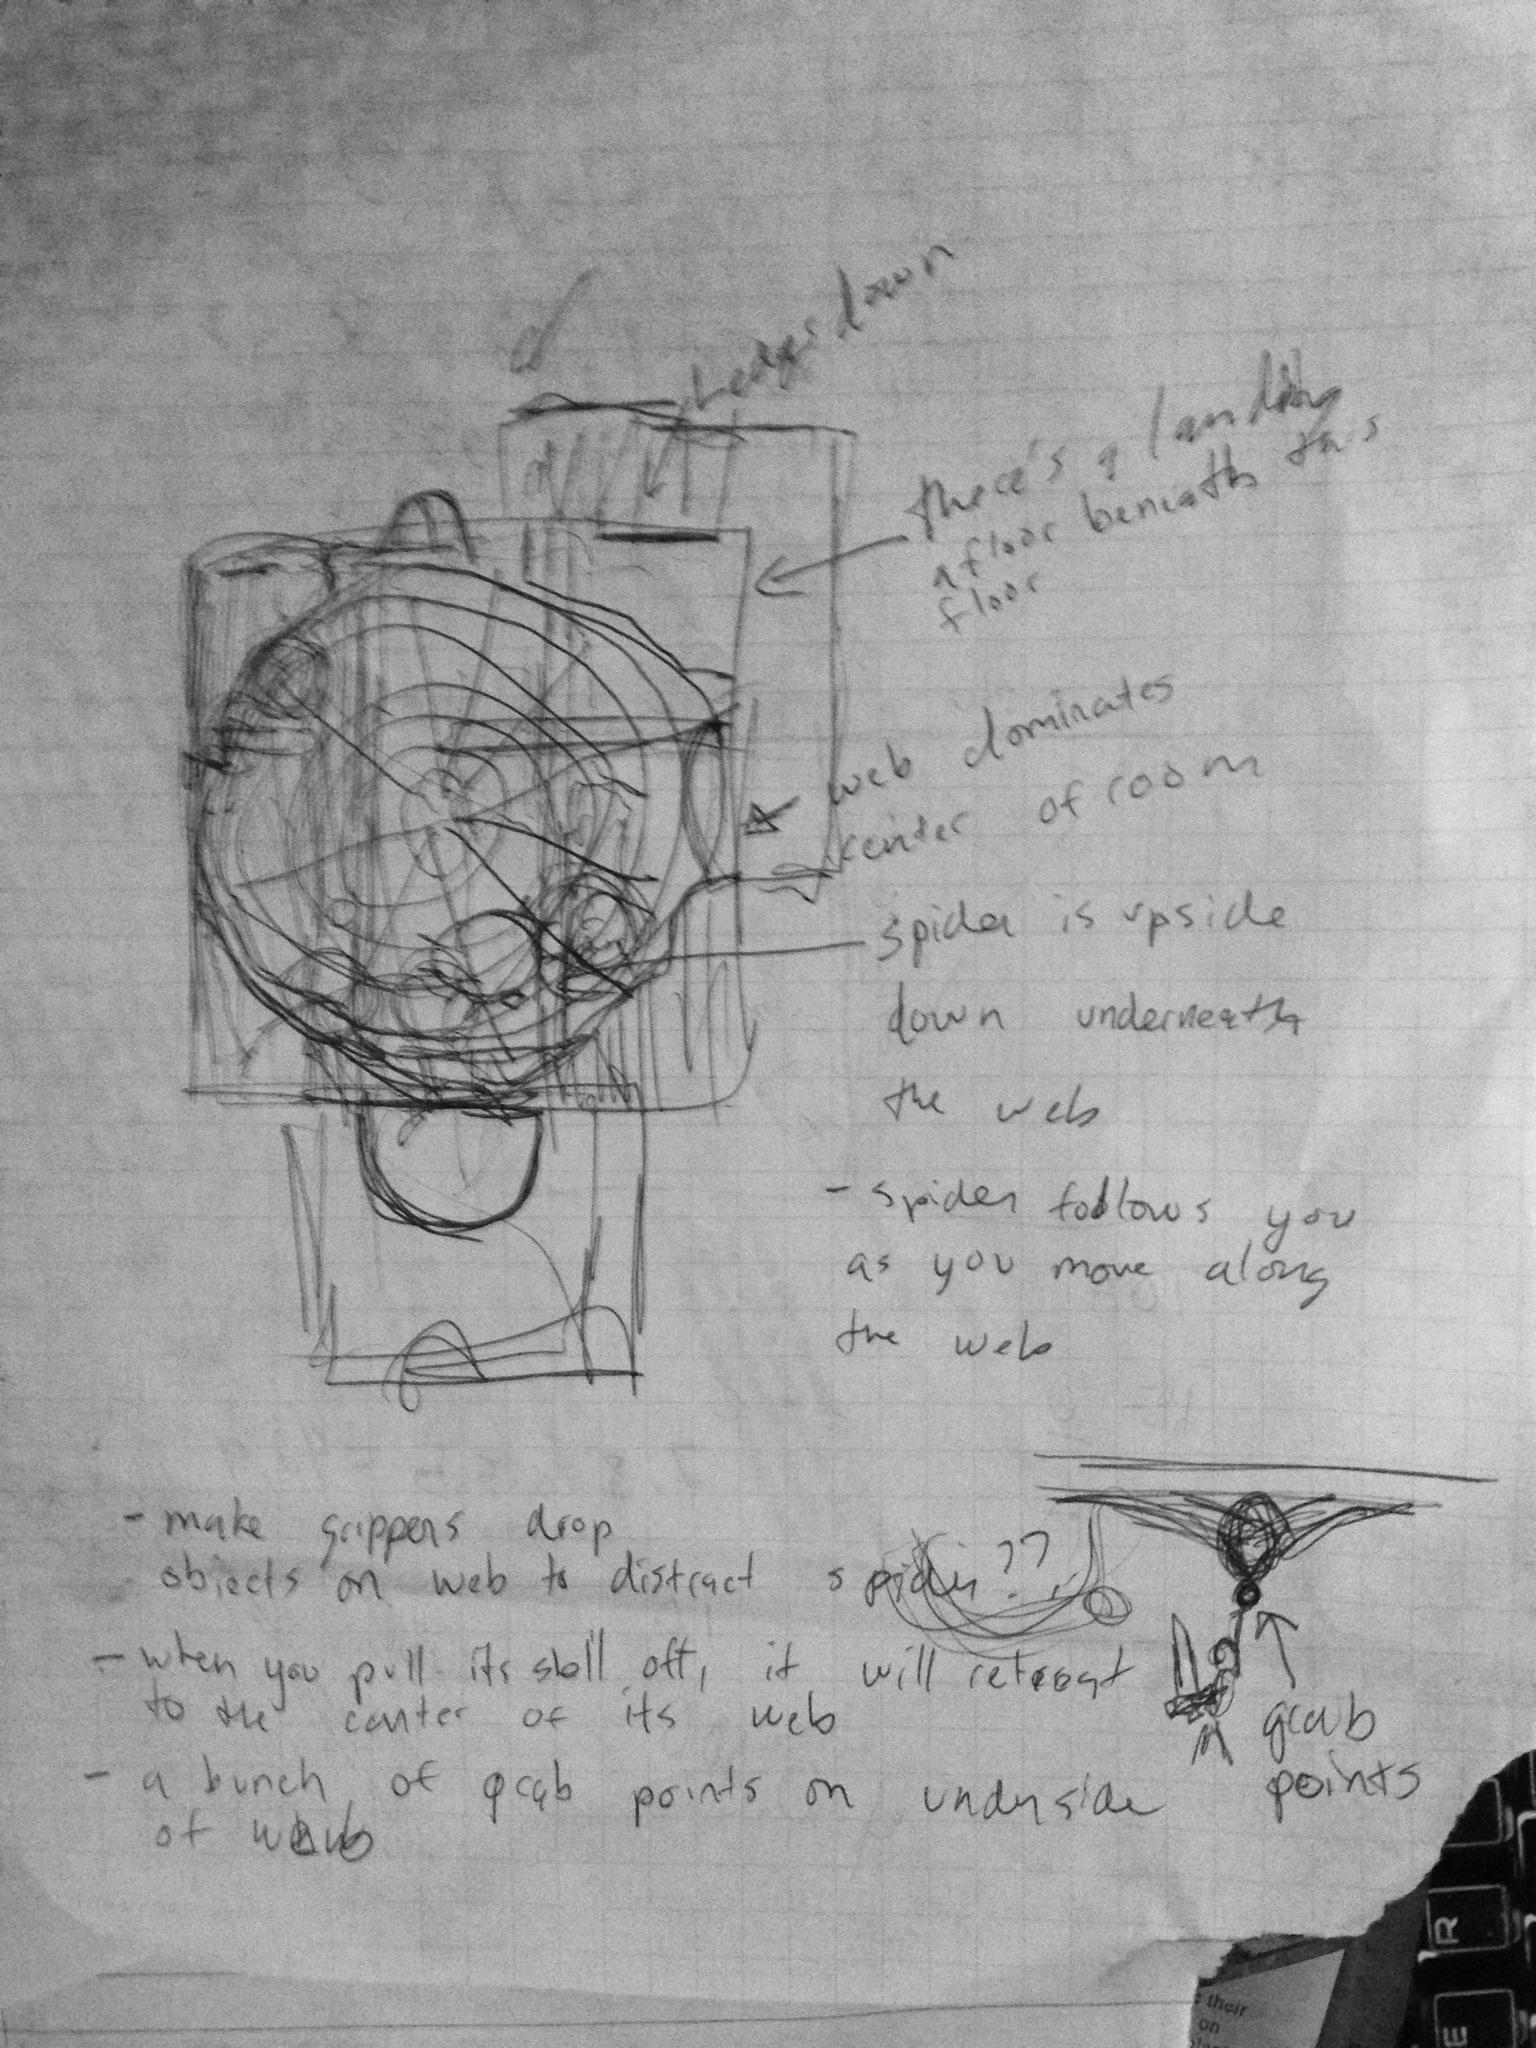 Ledge down
there's a landing
a floor beneath this
floor
web dominates
center of room
spider is upside
down underneath
the web
- spider follows you
as you move along
the web
- make grippers drop
objects on web to distract spider??
- when you pull its skll off, it will retreat
to the center of its web
- a bunch of grab points on underside
of web
grab
points
R
E
their
on